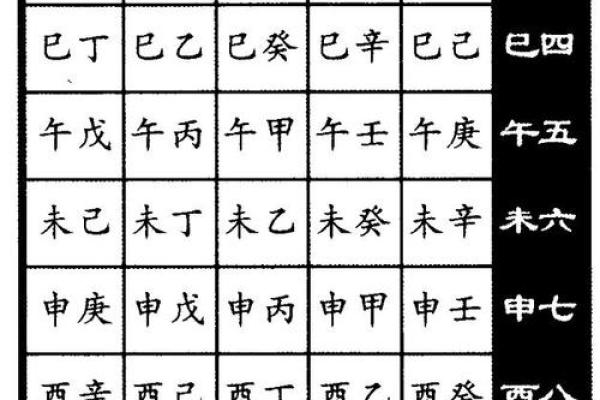 四巳 己巳 辛巳 癸巳 乙巳 丁巳
五午 庚午 壬午 甲午 丙午 戊午
六未 辛未 癸未 乙未 丁未 己未
七申 壬申 甲申 丙申 戊申 庚申
八酉 癸酉 乙酉 丁酉 己酉 辛酉